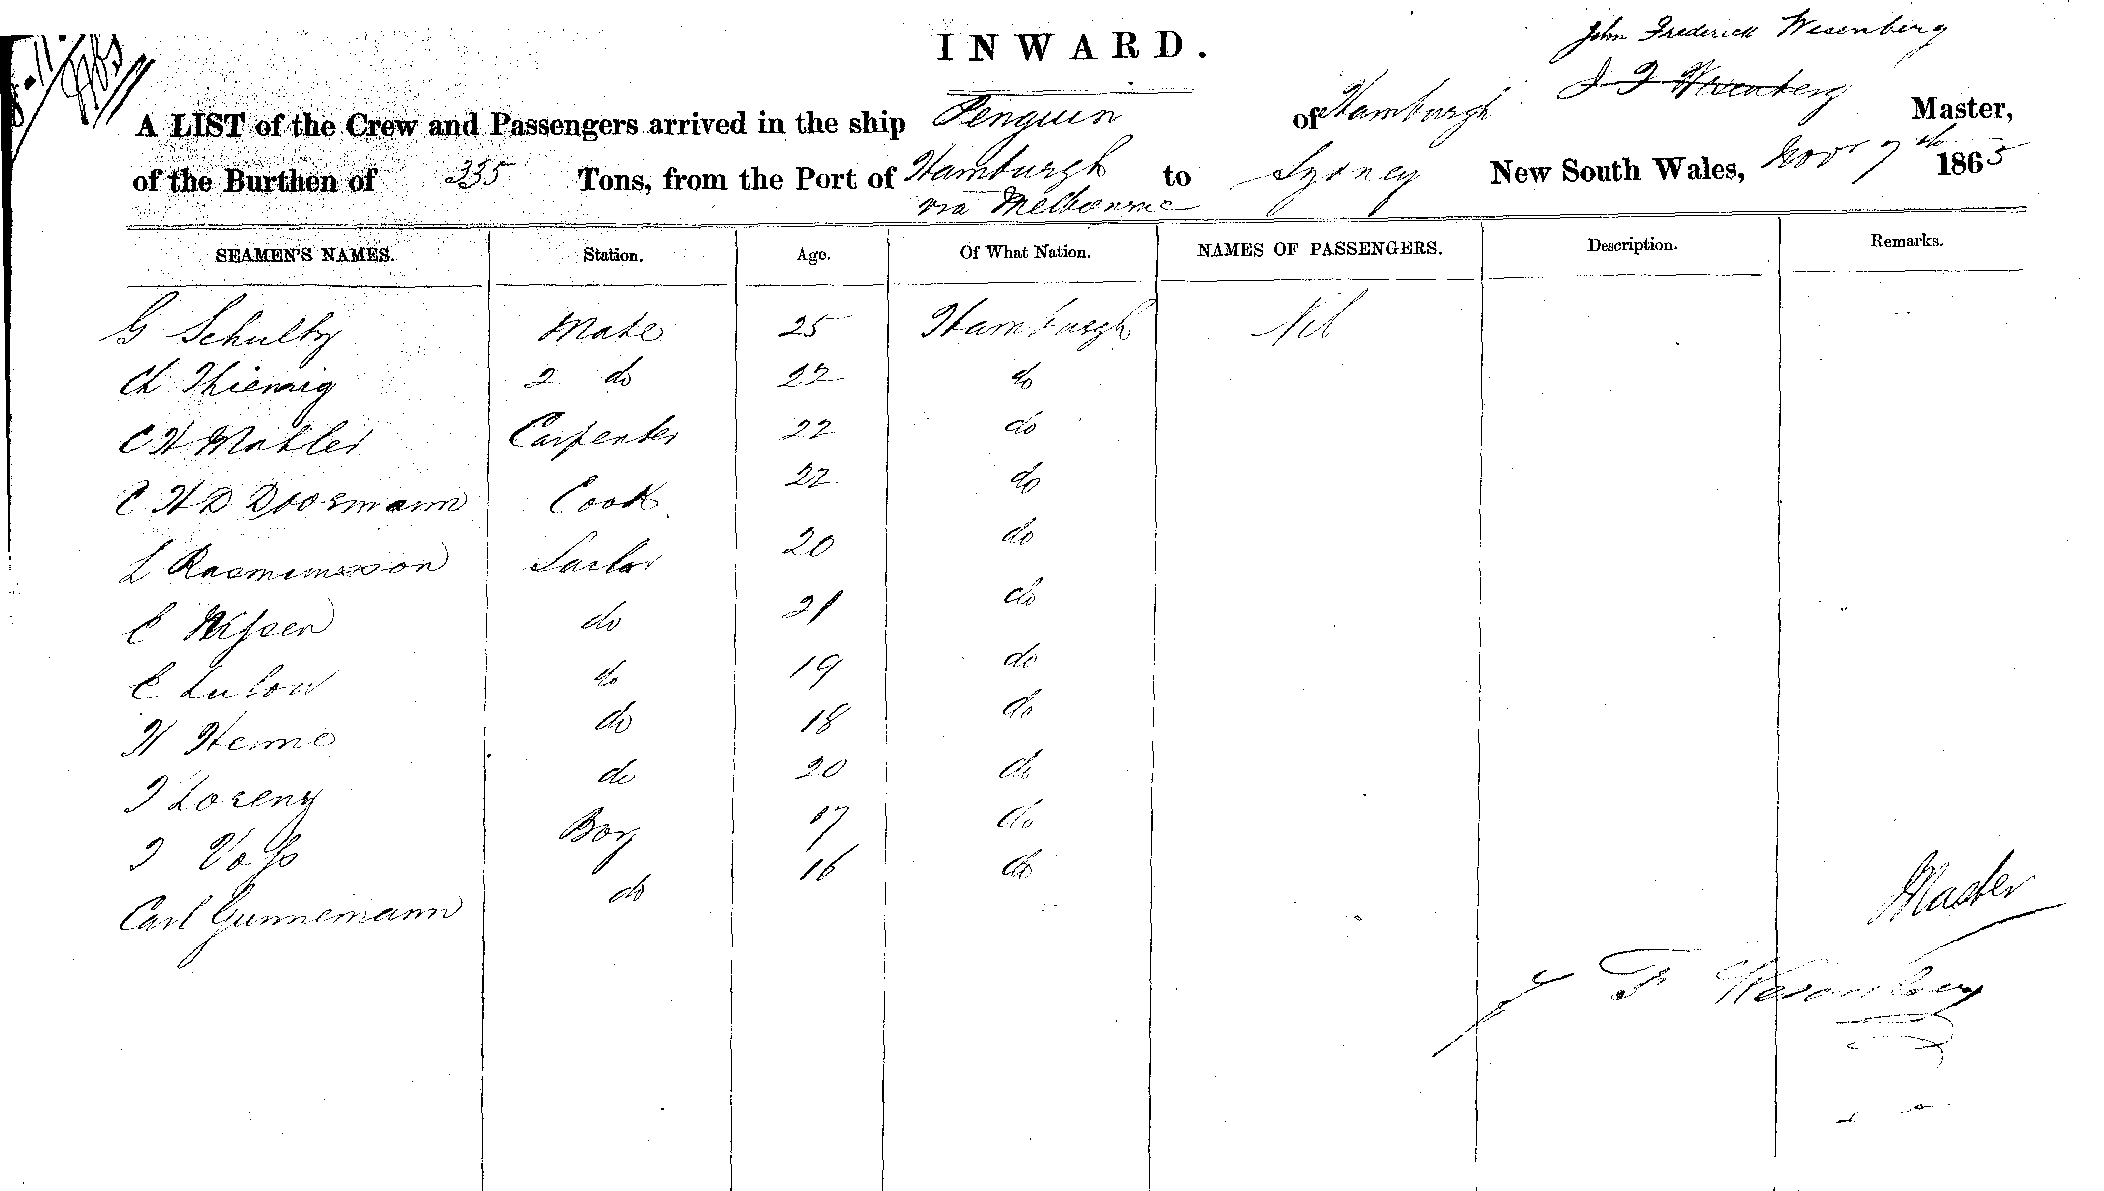 INWARD.
John Frederick Wesenberg
J F Wesenberg
A LIST of the Crew and Passengers arrived in the ship Penguin of Hamburgh Master,
of the Burthen of 235 Tons, from the Port of Hamburgh to Sydney New South Wales, Novr 7th 1865
via Melbourne
SEAMEN'S NAMES. Station. Age. Of What Nation. NAMES OF PASSENGERS. Description. Remarks.
G Schultz Mate 25 Hamburgh Nil
Ch Thiemig 2 do 22 do
C H Mahler Carpenter 22 do
C H D Doormann Cook 22 do
L Rasmusson Sailor 20 do
C Nissen do 21 do
C Lulow do 19 do
H Henne do 18 do
J Lorenz do 20 do
J Voss Boy 17 do
Carl Gunnemann do 16 do
Master
J F Wesenberg